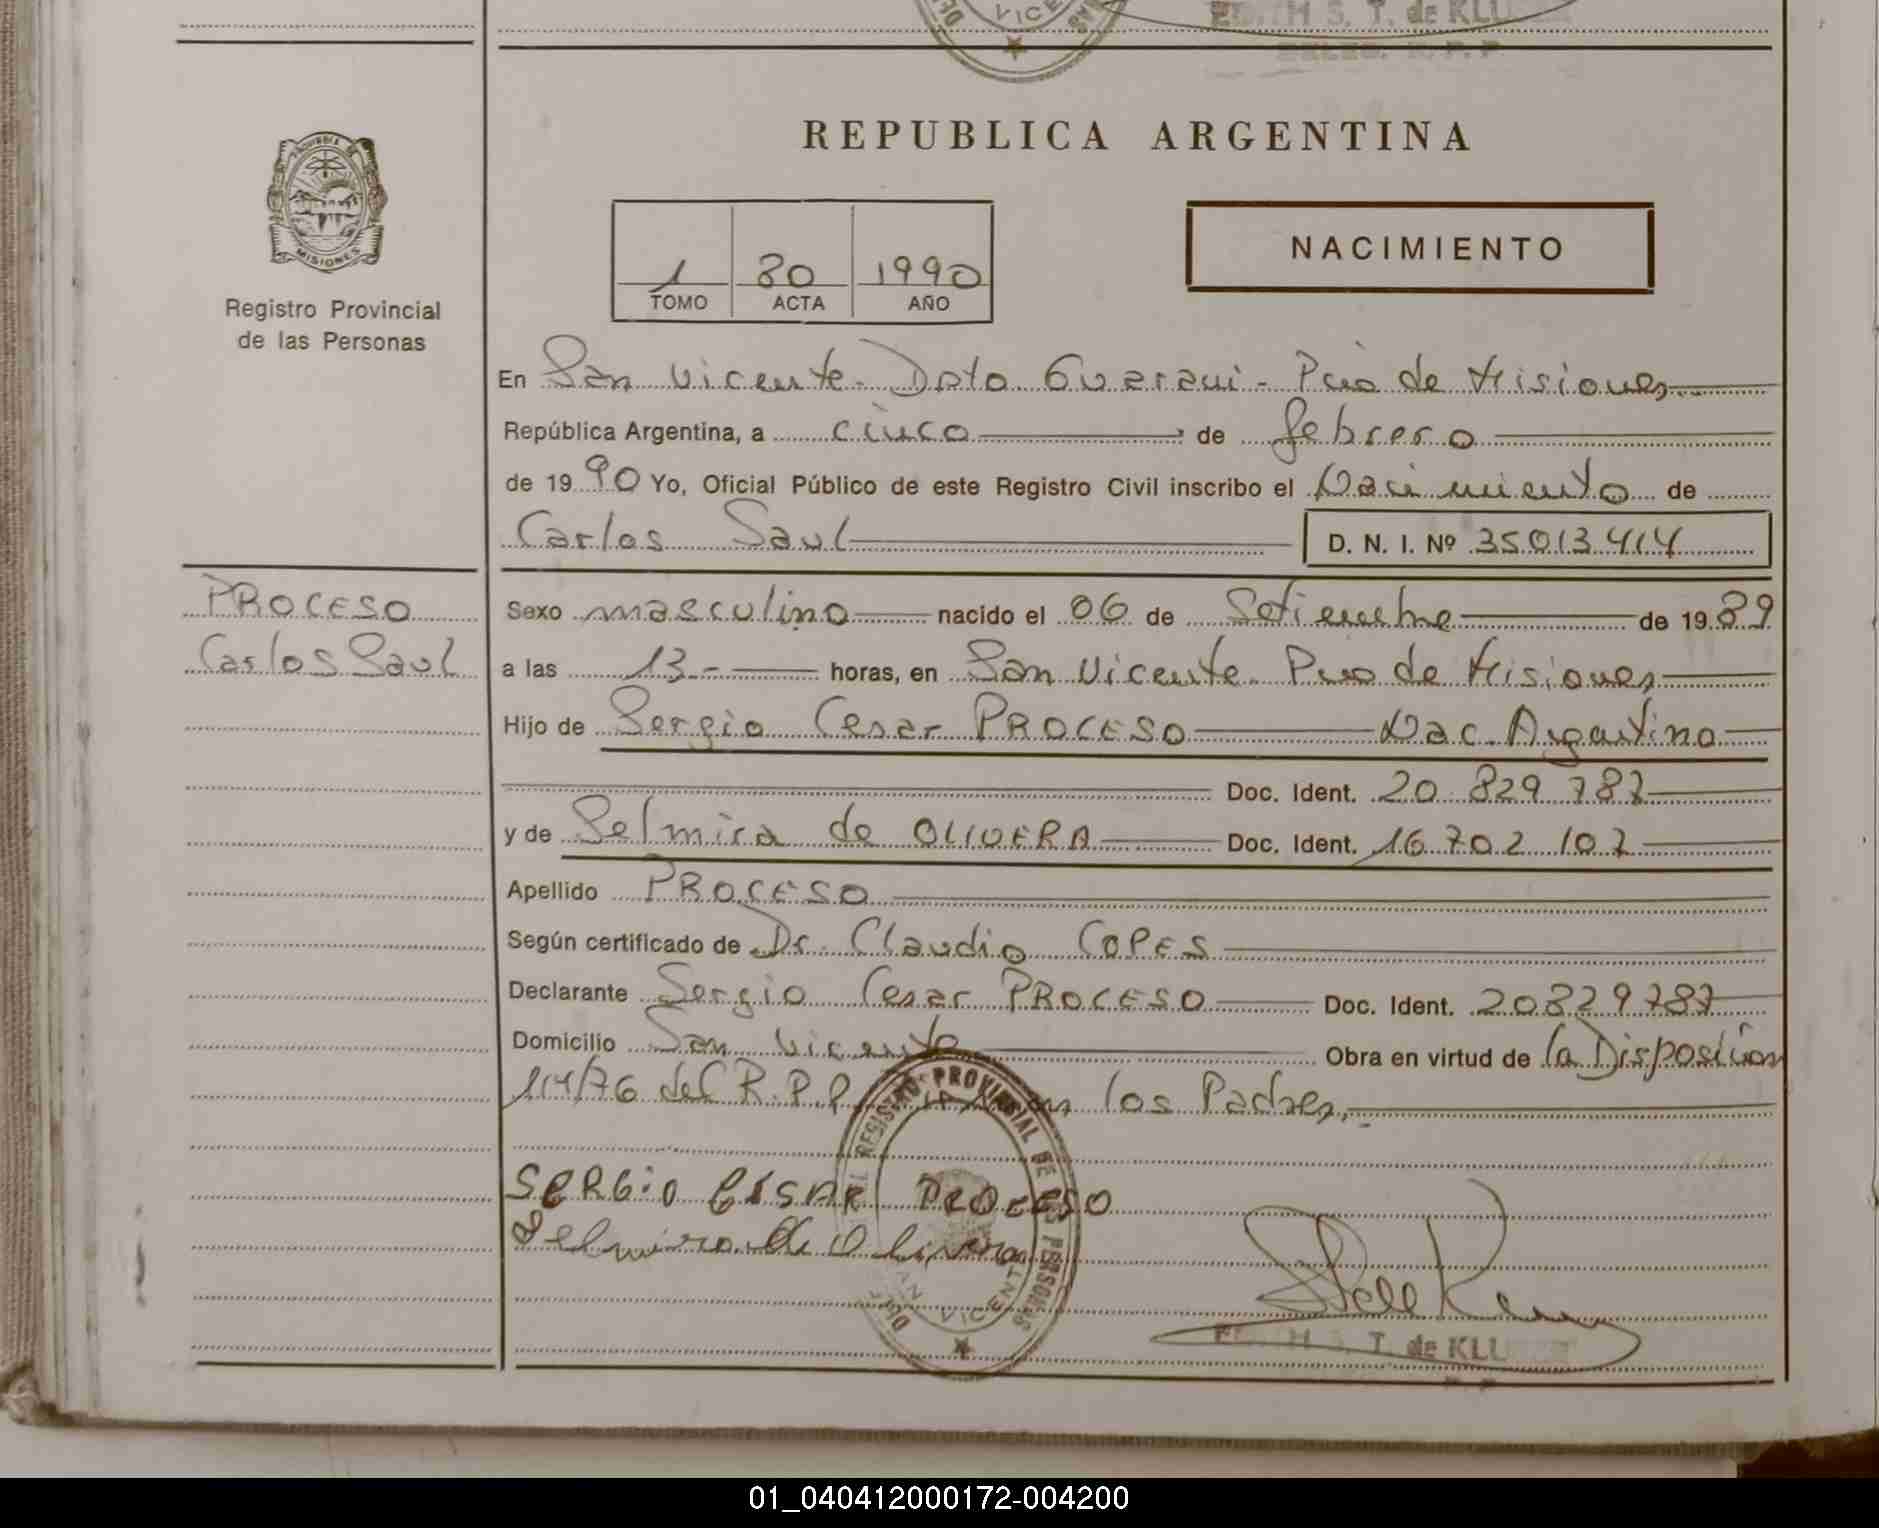 VICE
EDITH S. T. de KLU
DELEG. R. P. P.
REPUBLICA ARGENTINA
PROVINCIA DE
MISIONES
Registro Provincial
de las Personas
1 80 1990
TOMO ACTA AÑO
NACIMIENTO
En San Vicente - Dpto Guarani - Pcia de Misiones
República Argentina, a cinco de febrero
de 1990 Yo, Oficial Público de este Registro Civil inscribo el Nacimiento de
Carlos Saul D. N. I. Nº 35013414
PROCESO
Carlos Saul
Sexo masculino nacido el 06 de Setiembre de 1989
a las 13 - horas, en San Vicente Pcia de Misiones
Hijo de Sergio Cesar PROCESO Nac. Argentino
Doc. Ident. 20 829 787
y de Selmira de OLIVERA Doc. Ident. 16 702 107
Apellido PROCESO
Según certificado de Dr. Claudio COPES
Declarante Sergio Cesar PROCESO Doc. Ident. 20829787
Domicilio San Vicente Obra en virtud de la Disposición
114/76 del R.P.P. los Padres.
REGISTRO PROVINCIAL DE LAS PERSONAS
SERGIO CESAR PROCESO
Selmira de Olivera
SAN VICENTE
EDITH S. T. de KLU
01_040412000172-004200